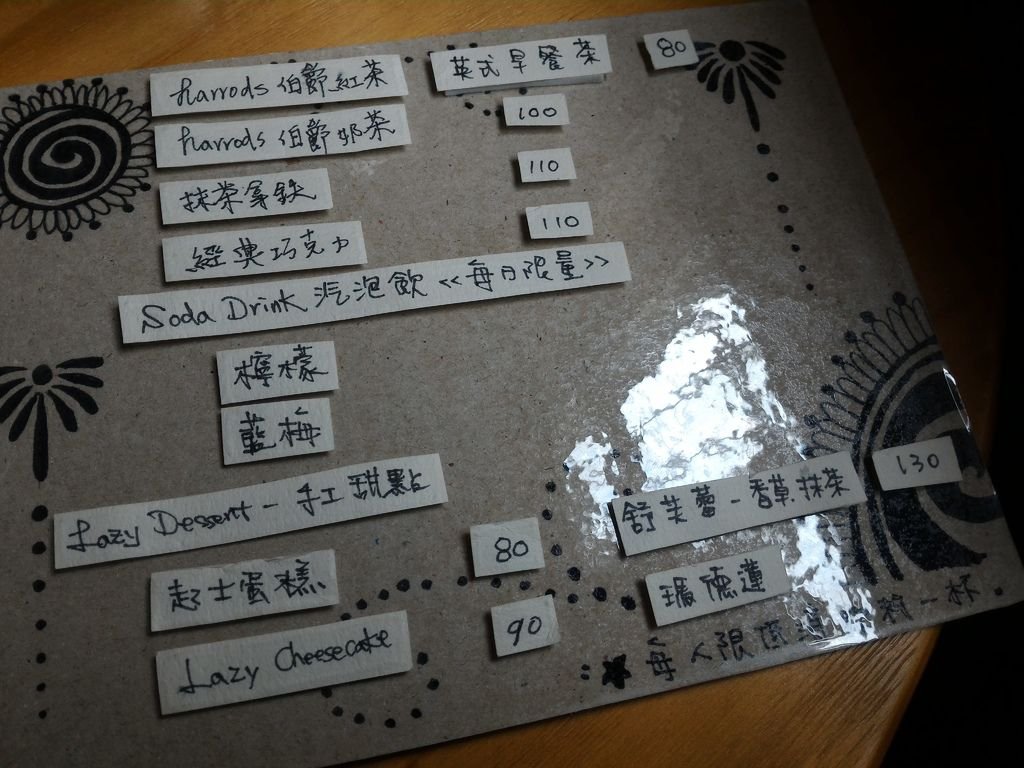 harrods 伯爵紅茶 英式早餐茶 80
harrods 伯爵奶茶 100
抹茶拿鉄 110
經典巧克力 110
Soda Drink 汽泡飲 <<每日限量>>
檸檬
藍梅
Lazy Dessert - 手工甜點
舒芙蕾 - 香草 抹茶 130
起士蛋糕 80
瑪德蓮
Lazy Cheesecake 90
每人限低消 一杯.